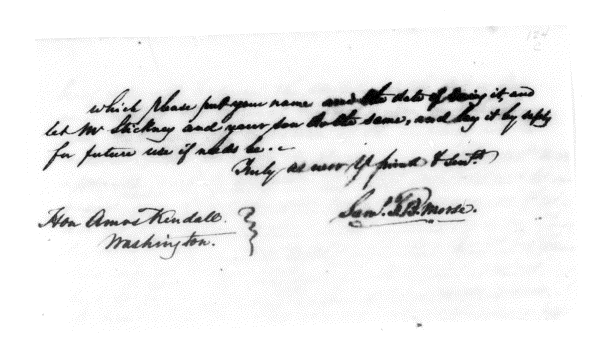 124
which please put your name and the date of doing it, and
let Mr Stickney and your son do the same, and lay it by safely
for future use if needs be.—
Truly as ever Yr friend & Servt
Saml. F. B. Morse.
Hon Amos Kendall.
Washington.